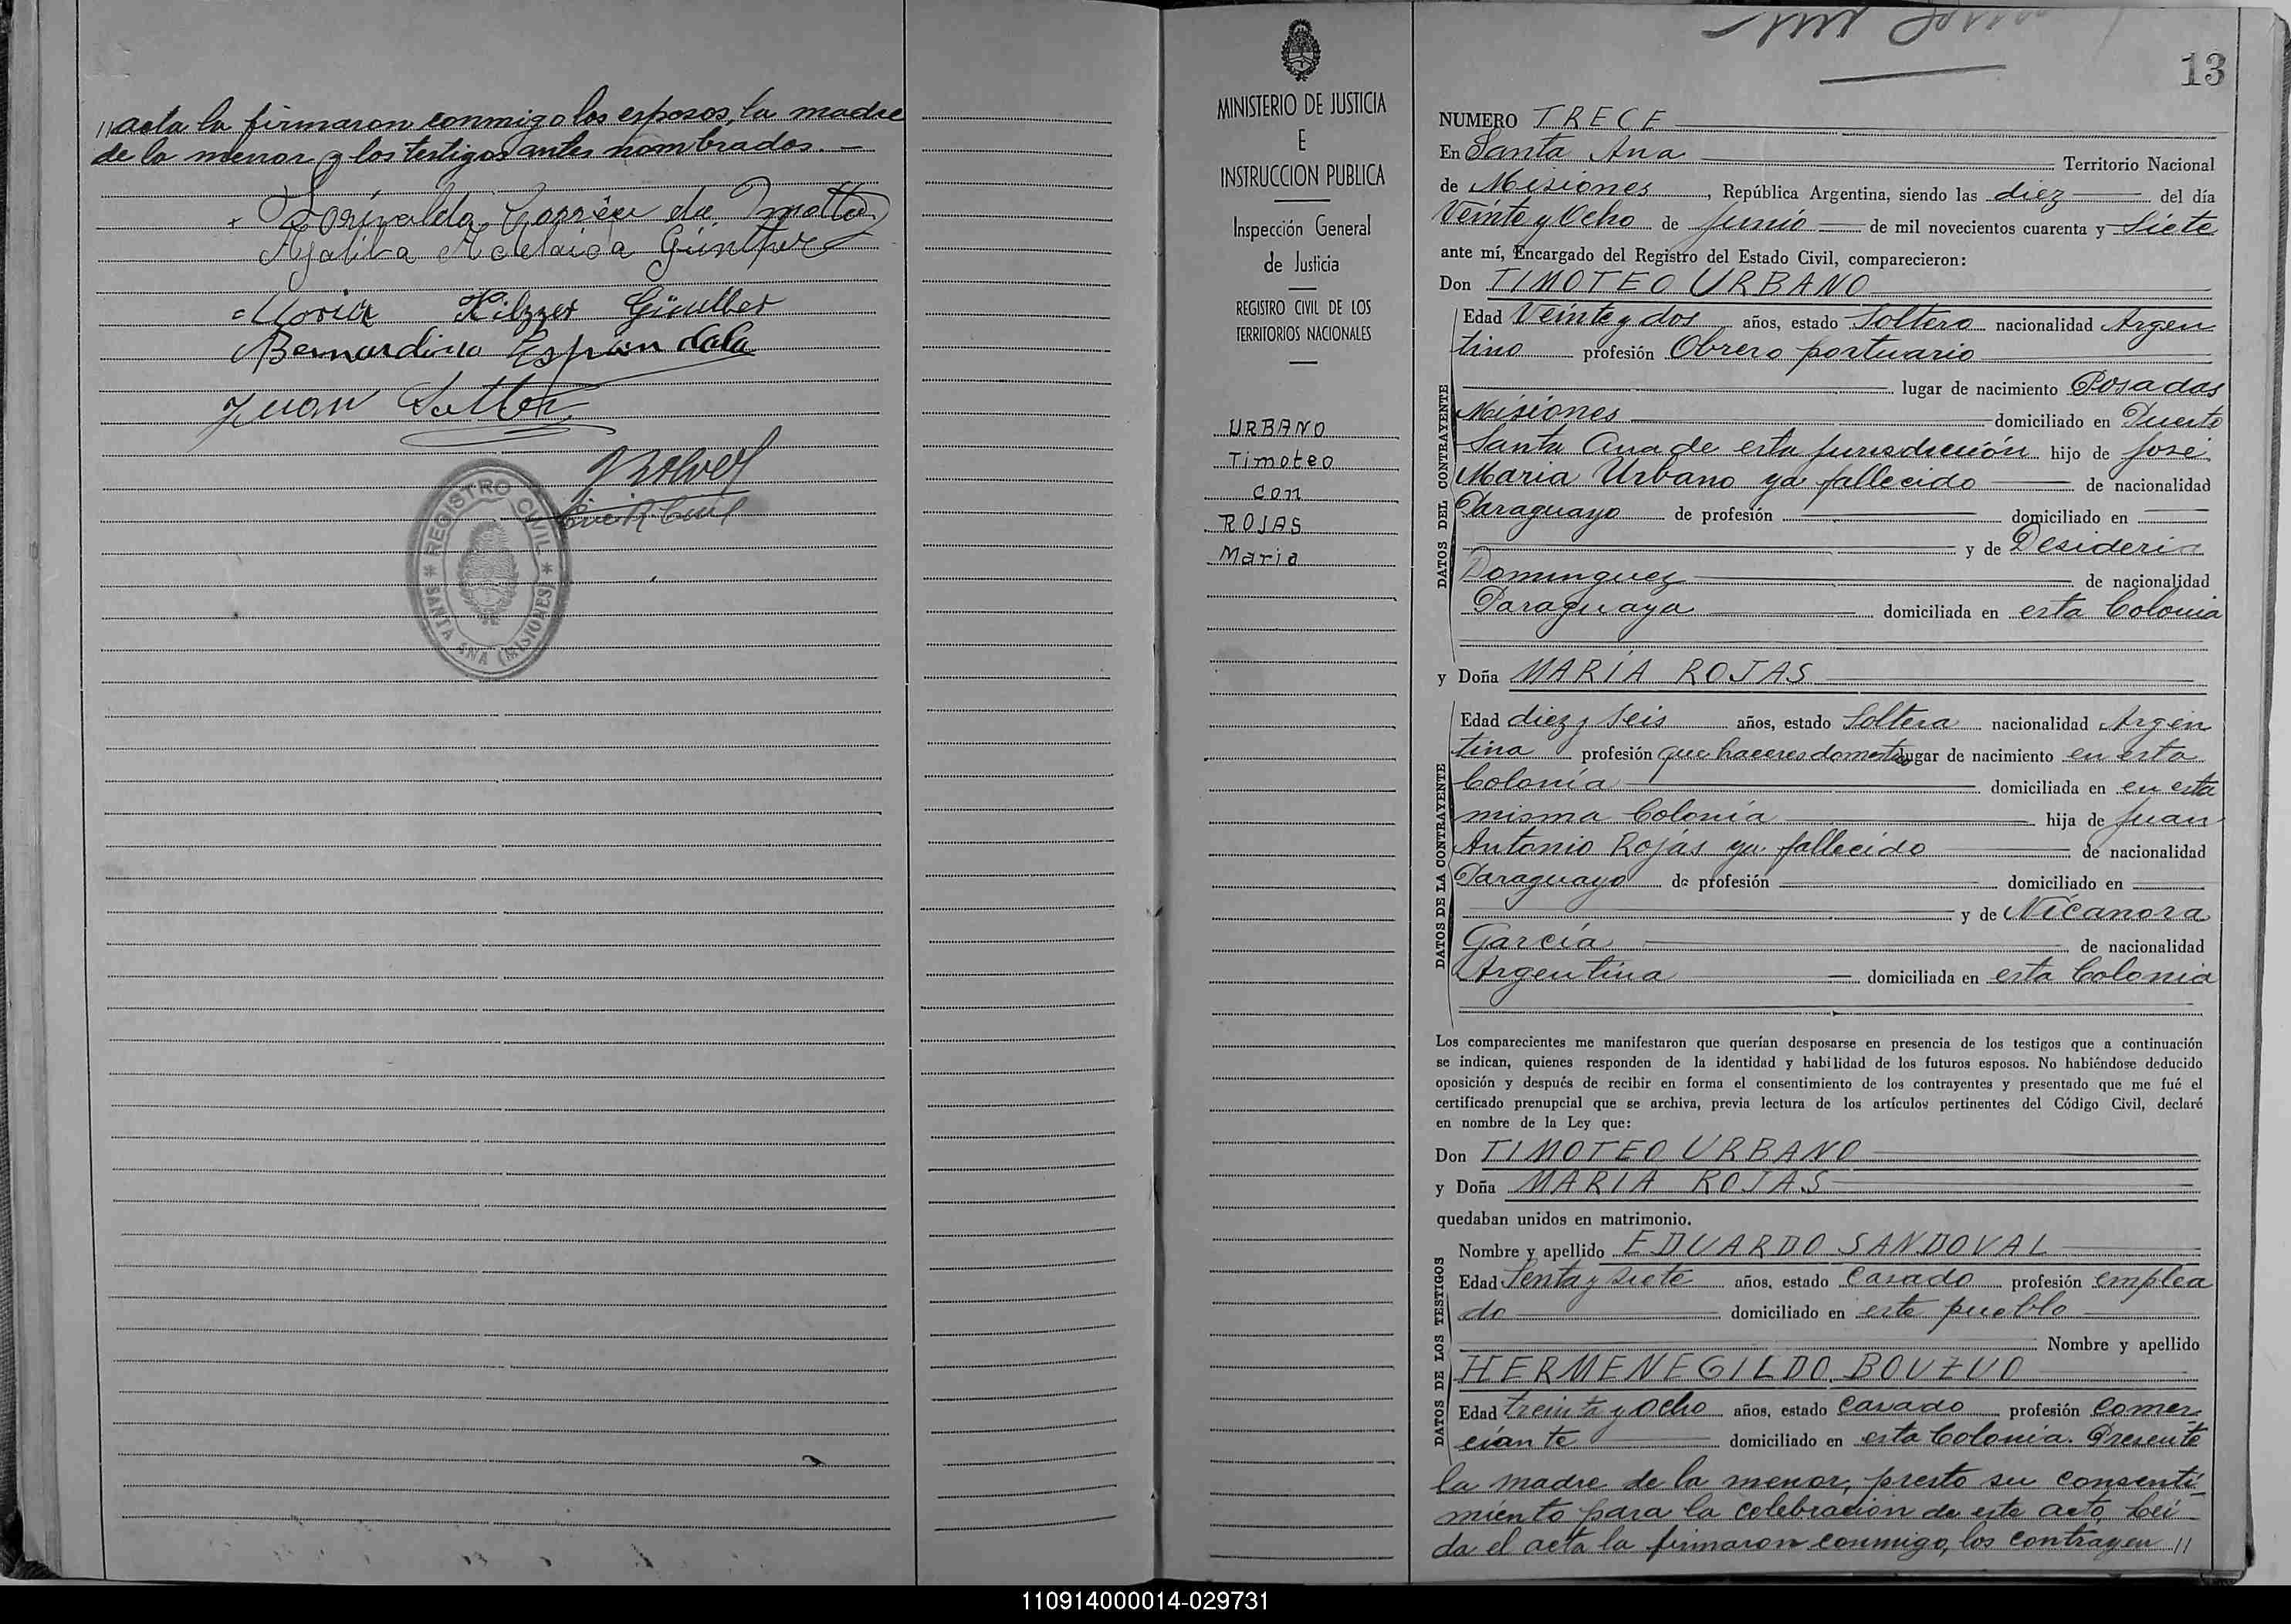 //acta la firmaron conmigo los esposos, la madre
de la menor y los testigos antes nombrados. —
Adelaida Günther
Maria Hilzzer Günther
Bernardino Espindola
Juan
* REGISTRO CIVIL *
SANTA ANA (MISIONES)
MINISTERIO DE JUSTICIA
E
INSTRUCCION PUBLICA
Inspección General
de Justicia
REGISTRO CIVIL DE LOS
TERRITORIOS NACIONALES
URBANO
Timoteo
con
ROJAS
Maria
13
NUMERO TRECE
En Santa Ana Territorio Nacional
de Misiones, República Argentina, siendo las diez del día
Veinte y Ocho de Junio de mil novecientos cuarenta y Siete
ante mí, Encargado del Registro del Estado Civil, comparecieron:
Don TIMOTEO URBANO
DATOS DEL CONTRAYENTE
Edad Veinte y dos años, estado Soltero nacionalidad Argen
tino profesión Obrero portuario
lugar de nacimiento Posadas
Misiones domiciliado en Puerto
Santa Ana de esta jurisdicción hijo de José
Maria Urbano ya fallecido de nacionalidad
Paraguayo de profesión domiciliado en
y de Desideria
Dominguez de nacionalidad
Paraguaya domiciliada en esta Colonia
y Doña MARIA ROJAS
DATOS DE LA CONTRAYENTE
Edad diez y seis años, estado Soltera nacionalidad Argen
tina profesión que haceres domestic lugar de nacimiento en esta
Colonia domiciliada en en esta
misma Colonia hija de Juan
Antonio Rojas ya fallecido de nacionalidad
Paraguayo de profesión domiciliado en
y de Nicanora
García de nacionalidad
Argentina domiciliada en esta Colonia
Los comparecientes me manifestaron que querían desposarse en presencia de los testigos que a continuación
se indican, quienes responden de la identidad y habilidad de los futuros esposos. No habiéndose deducido
oposición y después de recibir en forma el consentimiento de los contrayentes y presentado que me fué el
certificado prenupcial que se archiva, previa lectura de los artículos pertinentes del Código Civil, declaré
en nombre de la Ley que:
Don TIMOTEO URBANO
y Doña MARIA ROJAS
quedaban unidos en matrimonio.
DATOS DE LOS TESTIGOS
Nombre y apellido EDUARDO SANDOVAL
Edad Tenta y siete años, estado Casado profesión emplea
do domiciliado en este pueblo
Nombre y apellido
HERMENEGILDO BOUZUO
Edad treinta y ocho años, estado Casado profesión Comer
ciante domiciliado en esta Colonia. Presente
la madre de la menor, presto su consenti-
miento para la celebración de este acto, Lei-
da el acta la firmaron conmigo, los contrayen //
110914000014-029731